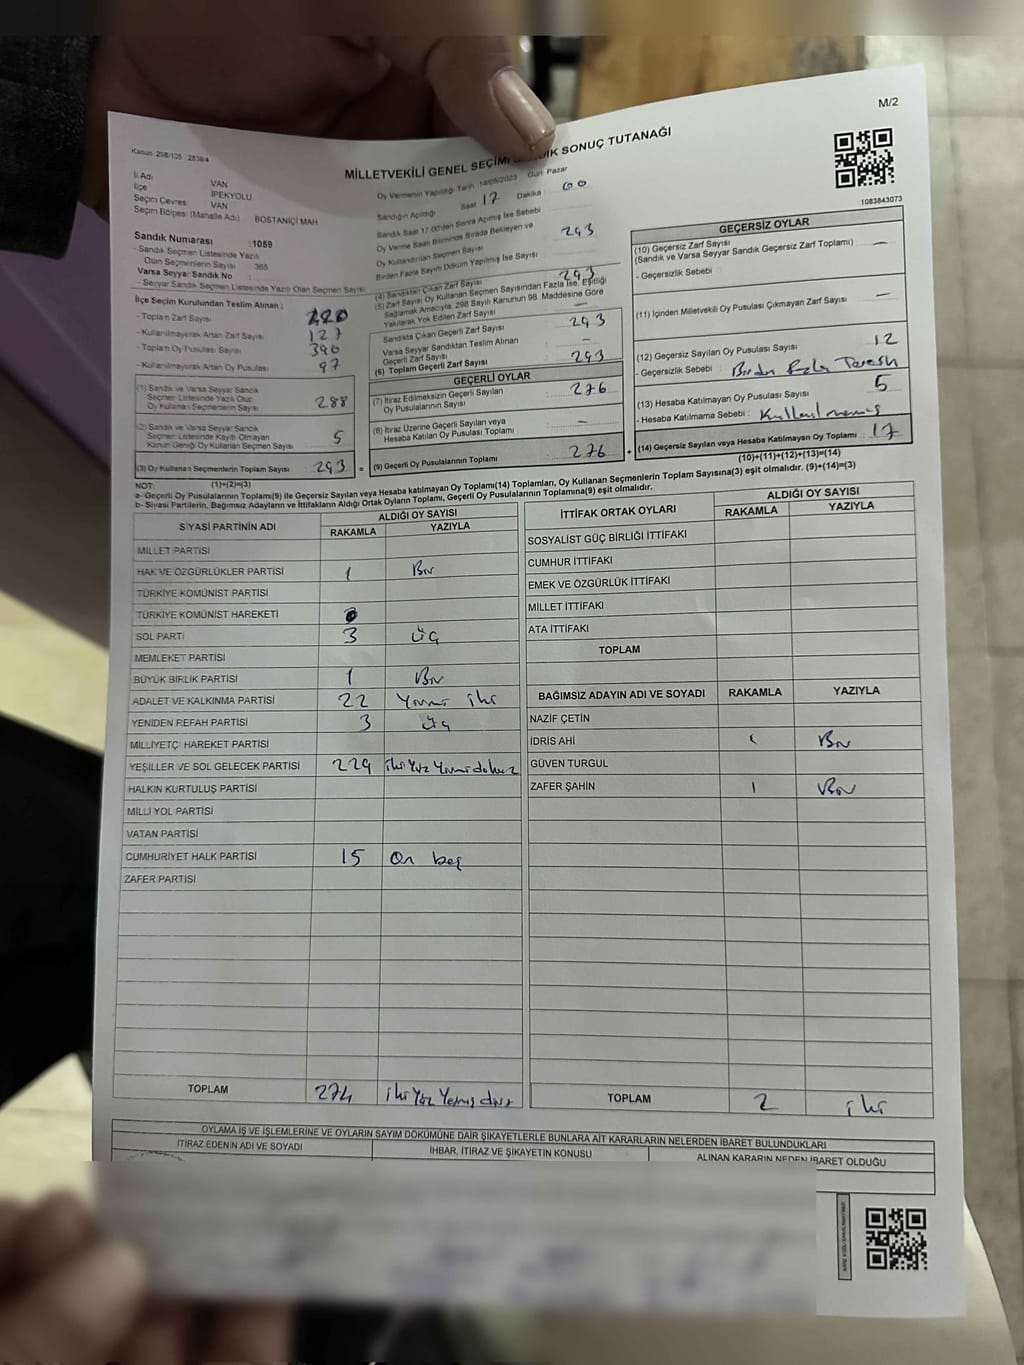 M/2
Kanun: 298/105 : 2839/4
MİLLETVEKİLİ GENEL SEÇİMİ SONUÇ TUTANAĞI
1083843073
İl Adı VAN
İlçe İPEKYOLU
Seçim Çevres VAN
Seçim Bölgesi (Mahalle Adı) BOSTANİÇİ MAH
Sandık Numarası :1059
- Sandık Seçmen Listesinde Yazılı
Olan Seçmenlerin Sayısı 365
Varsa Seyyar Sandık No :
- Seyyar Sandık Seçmen Listesinde Yazılı Olan Seçmen Sayısı
İlçe Seçim Kurulundan Teslim Alınan ;
- Toplam Zarf Sayısı
- Kullanılmayarak Artan Zarf Sayısı 127
- Toplam Oy Pusulası Sayısı 390
- Kullanılmayarak Artan Oy Pusulası 97
(1) Sandık ve Varsa Seyyar Sandık
Seçmen Listesinde Yazılı Olup
Oy Kullanan Seçmenlerin Sayısı 288
(2) Sandık ve Varsa Seyyar Sandık
Seçmen Listesinde Kayıtlı Olmayan
Kanun Gereği Oy Kullanan Seçmen Sayısı 5
(3) Oy Kullanan Seçmenlerin Toplam Sayısı 293
Oy Vermenin Yapıldığı Tarih 14/05/2023 Gün Pazar
Sandığın Açıldığı Saat 17 Dakika 00
Sandık Saat 17.00'den Sonra Açılmış İse Sebebi
Oy Verme Saati Bitiminde Sırada Bekleyen ve
Oy Kullandırılan Seçmen Sayısı 293
Birden Fazla Sayım Döküm Yapılmış İse Sayısı
(4) Sandıktan Çıkan Zarf Sayısı 293
(5) Zarf Sayısı Oy Kullanan Seçmen Sayısından Fazla İse, Eşitliği
Sağlamak Amacıyla, 298 Sayılı Kanunun 98. Maddesine Göre
Yakılarak Yok Edilen Zarf Sayısı –
Sandıkta Çıkan Geçerli Zarf Sayısı 293
Varsa Seyyar Sandıktan Teslim Alınan
Geçerli Zarf Sayısı –
(6) Toplam Geçerli Zarf Sayısı 293
GEÇERLİ OYLAR
(7) İtiraz Edilmeksizin Geçerli Sayılan
Oy Pusulalarının Sayısı 276
(8) İtiraz Üzerine Geçerli Sayılan veya
Hesaba Katılan Oy Pusulası Toplamı –
(9) Geçerli Oy Pusulalarının Toplamı 276
GEÇERSİZ OYLAR
(10) Geçersiz Zarf Sayısı
(Sandık ve Varsa Seyyar Sandık Geçersiz Zarf Toplamı) –
- Geçersizlik Sebebi
(11) İçinden Milletvekili Oy Pusulası Çıkmayan Zarf Sayısı –
(12) Geçersiz Sayılan Oy Pusulası Sayısı 12
- Geçersizlik Sebebi : Birden Fazla
(13) Hesaba Katılmayan Oy Pusulası Sayısı 5
- Hesaba Katılmama Sebebi : Kullanılmamış
(14) Geçersiz Sayılan veya Hesaba Katılmayan Oy Toplamı 17
(10)+(11)+(12)+(13)=(14)
NOT: (1)+(2)=(3)
a- Geçerli Oy Pusulalarının Toplamı(9) ile Geçersiz Sayılan veya Hesaba katılmayan Oy Toplamı(14) Toplamları, Oy Kullanan Seçmenlerin Toplam Sayısına(3) eşit olmalıdır. (9)+(14)=(3)
b- Siyasi Partilerin, Bağımsız Adayların ve İttifakların Aldığı Ortak Oyların Toplamı, Geçerli Oy Pusulalarının Toplamına(9) eşit olmalıdır.
SİYASİ PARTİNİN ADI ALDIĞI OY SAYISI
RAKAMLA YAZIYLA
MİLLET PARTİSİ
HAK VE ÖZGÜRLÜKLER PARTİSİ 1 Bir
TÜRKİYE KOMÜNİST PARTİSİ
TÜRKİYE KOMÜNİST HAREKETİ
SOL PARTİ 3 üç
MEMLEKET PARTİSİ
BÜYÜK BİRLİK PARTİSİ 1 Bir
ADALET VE KALKINMA PARTİSİ 22 Yirmi iki
YENİDEN REFAH PARTİSİ 3 üç
MİLLİYETÇİ HAREKET PARTİSİ
YEŞİLLER VE SOL GELECEK PARTİSİ 229 iki Yüz Yirmi dokuz
HALKIN KURTULUŞ PARTİSİ
MİLLİ YOL PARTİSİ
VATAN PARTİSİ
CUMHURİYET HALK PARTİSİ 15 On beş
ZAFER PARTİSİ
TOPLAM 274 iki Yüz Yetmiş dört
İTTİFAK ORTAK OYLARI ALDIĞI OY SAYISI
RAKAMLA YAZIYLA
SOSYALİST GÜÇ BİRLİĞİ İTTİFAKI
CUMHUR İTTİFAKI
EMEK VE ÖZGÜRLÜK İTTİFAKI
MİLLET İTTİFAKI
ATA İTTİFAKI
TOPLAM
BAĞIMSIZ ADAYIN ADI VE SOYADI RAKAMLA YAZIYLA
NAZİF ÇETİN
İDRİS AHİ 1 Bir
GÜVEN TURGUL
ZAFER ŞAHİN 1 Bir
TOPLAM 2 iki
OYLAMA İŞ VE İŞLEMLERİNE VE OYLARIN SAYIM DÖKÜMÜNE DAİR ŞİKAYETLERLE BUNLARA AİT KARARLARIN NELERDEN İBARET BULUNDUKLARI
İTİRAZ EDENİN ADI VE SOYADI İHBAR, İTİRAZ VE ŞİKAYETİN KONUSU ALINAN KARARIN NEDEN İBARET OLDUĞU